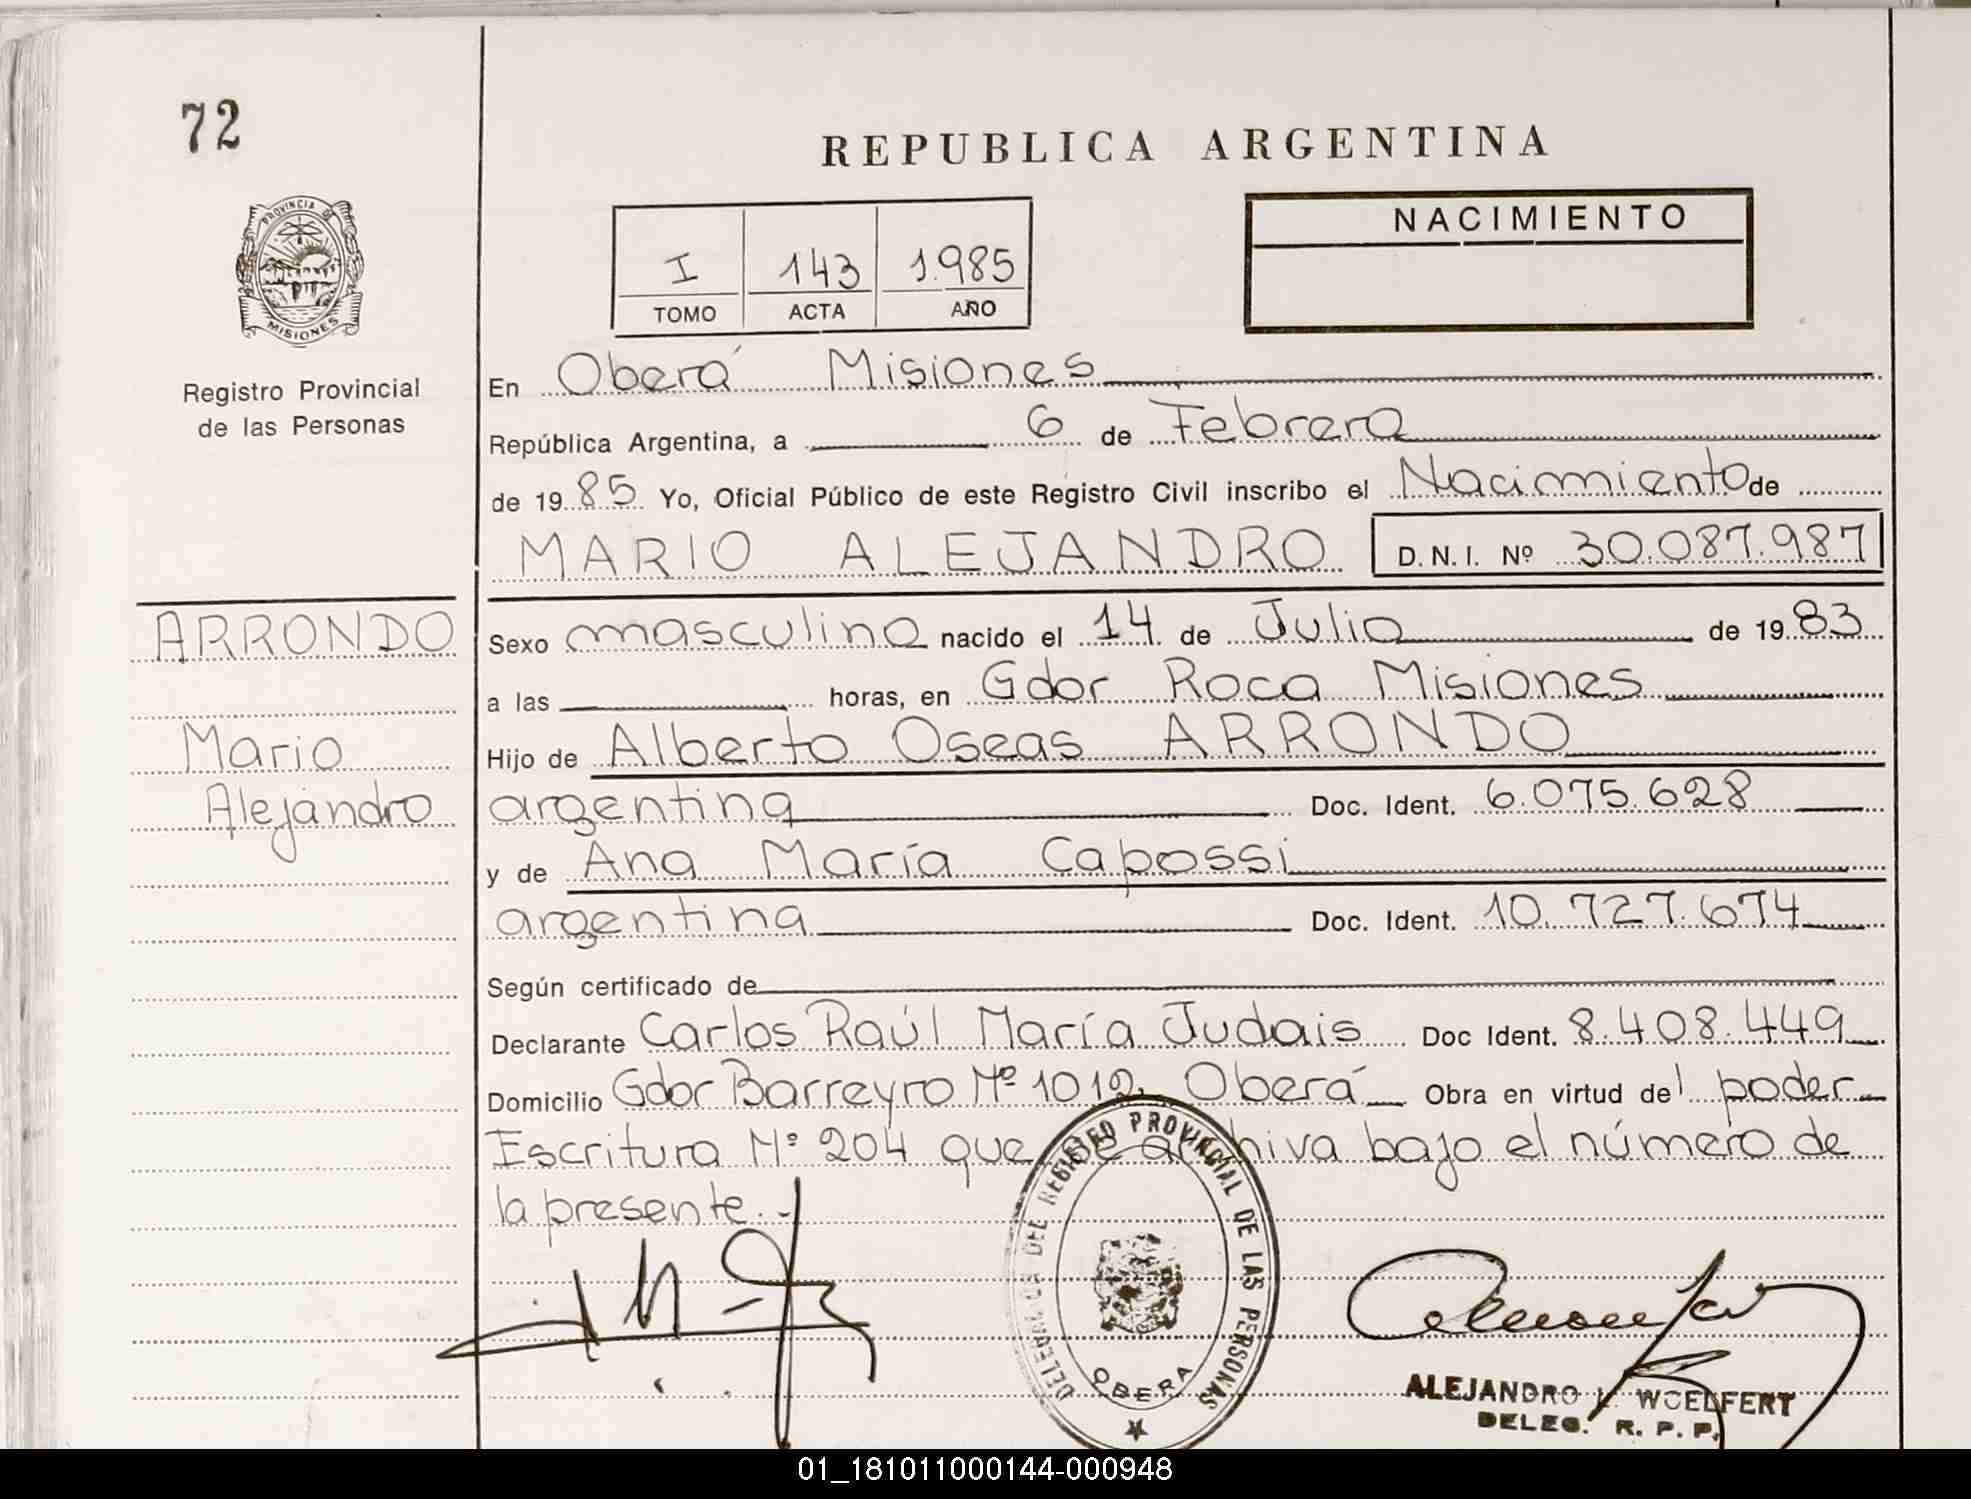 72
REPUBLICA ARGENTINA
PROVINCIA DE
MISIONES
Registro Provincial
de las Personas
I 143 1.985
TOMO ACTA AÑO
NACIMIENTO
En Oberá Misiones
República Argentina, a 6 de Febrero
de 19 85 Yo, Oficial Público de este Registro Civil inscribo el Nacimiento de
MARIO ALEJANDRO D.N.I. Nº 30.087.987
ARRONDO
Mario
Alejandro
Sexo masculino nacido el 14 de Julio de 19 83
a las horas, en Gdor Roca Misiones
Hijo de Alberto Oseas ARRONDO
argentina Doc. Ident. 6.075.628
y de Ana María Capossi
argentina Doc. Ident. 10.727.674
Según certificado de
Declarante Carlos Raúl María Judais Doc Ident. 8.408.449
Domicilio Gdor Barreyro Nº 1012, Oberá Obra en virtud del poder
Escritura Nº 204 que se archiva bajo el número de
la presente.-
DEL REGISTRO PROVINCIAL DE LAS PERSONAS
OBERA
ALEJANDRO WOELFERT
DELEG. R. P. P.
01_181011000144-000948